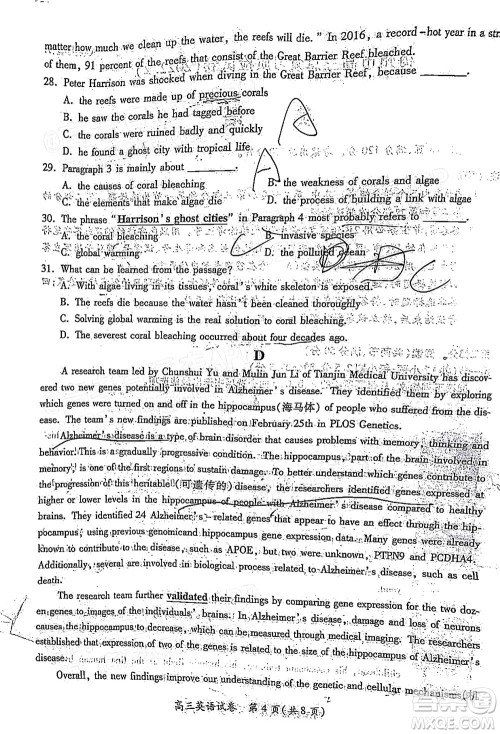 of them, 91 percent of the reefs that consist of the Great Barrier Reef bleached.
matter how much we clean up the water, the reefs will die." In 2016, a record-hot year in a str
28. Peter Harrison was shocked when diving in the Great Barrier Reef, because ________.
A. the reefs were made up of precious corals
B. he saw the corals he had tagged before
C. the corals were ruined badly and quickly
D. he found a ghost city with tropical life
A
29. Paragraph 3 is mainly about ________.
A. the causes of coral bleaching B. the weakness of corals and algae
C. the elements that make algae die D. the process of building a link with algae
A
30. The phrase "Harrison's ghost cities" in Paragraph 4 most probably refers to ________.
A. the coral bleaching B. invasive species
C. global warming D. the polluted ocean
31. What can be learned from the passage?
A. With algae living in its tissues, coral's white skeleton is exposed.
B. The reefs die because the water hasn't been cleaned thoroughly
C. Solving global warming is the real solution to coral bleaching.
D. The severest coral bleaching occurred about four decades ago.
D
A research team led by Chunshui Yu and Mulin Jun Li of Tianjin Medical University has discovered
two new genes potentially involved in Alzheimer's disease. They identified them by exploring
which genes were turned on and off in the hippocampus(海马体) of people who suffered from the
disease. The team's new findings are published on February 25th in PLOS Genetics.
Alzheimer's disease is a type of brain disease that causes problems with memory, thinking and
behavior. This is a gradually progressive condition. The hippocampus, a part of the brain involved in
memory, is one of the first regions damaged. To better understand which genes contribute to
the progression of this heritable(可遗传的) disease, the researchers identified genes expressed at
higher or lower levels in the hippocampus of people with Alzheimer's disease compared to healthy
brains. They identified 24 Alzheimer's-related genes that appear to have an effect through the
hippocampus, using existing hippocampus gene expression data. Many genes were already known
causes of Alzheimer's, such as APOE, but two were unknown, PTPN9 and PCDHA4.
Additionally, several are involved in biological processes related to Alzheimer's disease, such as cell
death.
The research team further validated their findings by comparing gene expression for the two doz-
en genes to images of the individuals' brains. In Alzheimer's disease, damage and loss of neurons
causes the hippocampus to decrease, which can be measured through medical imaging. The researchers
established that expression of two of the genes is related to the size of the hippocampus of Alzheimer's
disease.
Overall, the new findings improve our understanding of the genetic and cellular mechanisms
高三英语试卷 第4页(共8页)